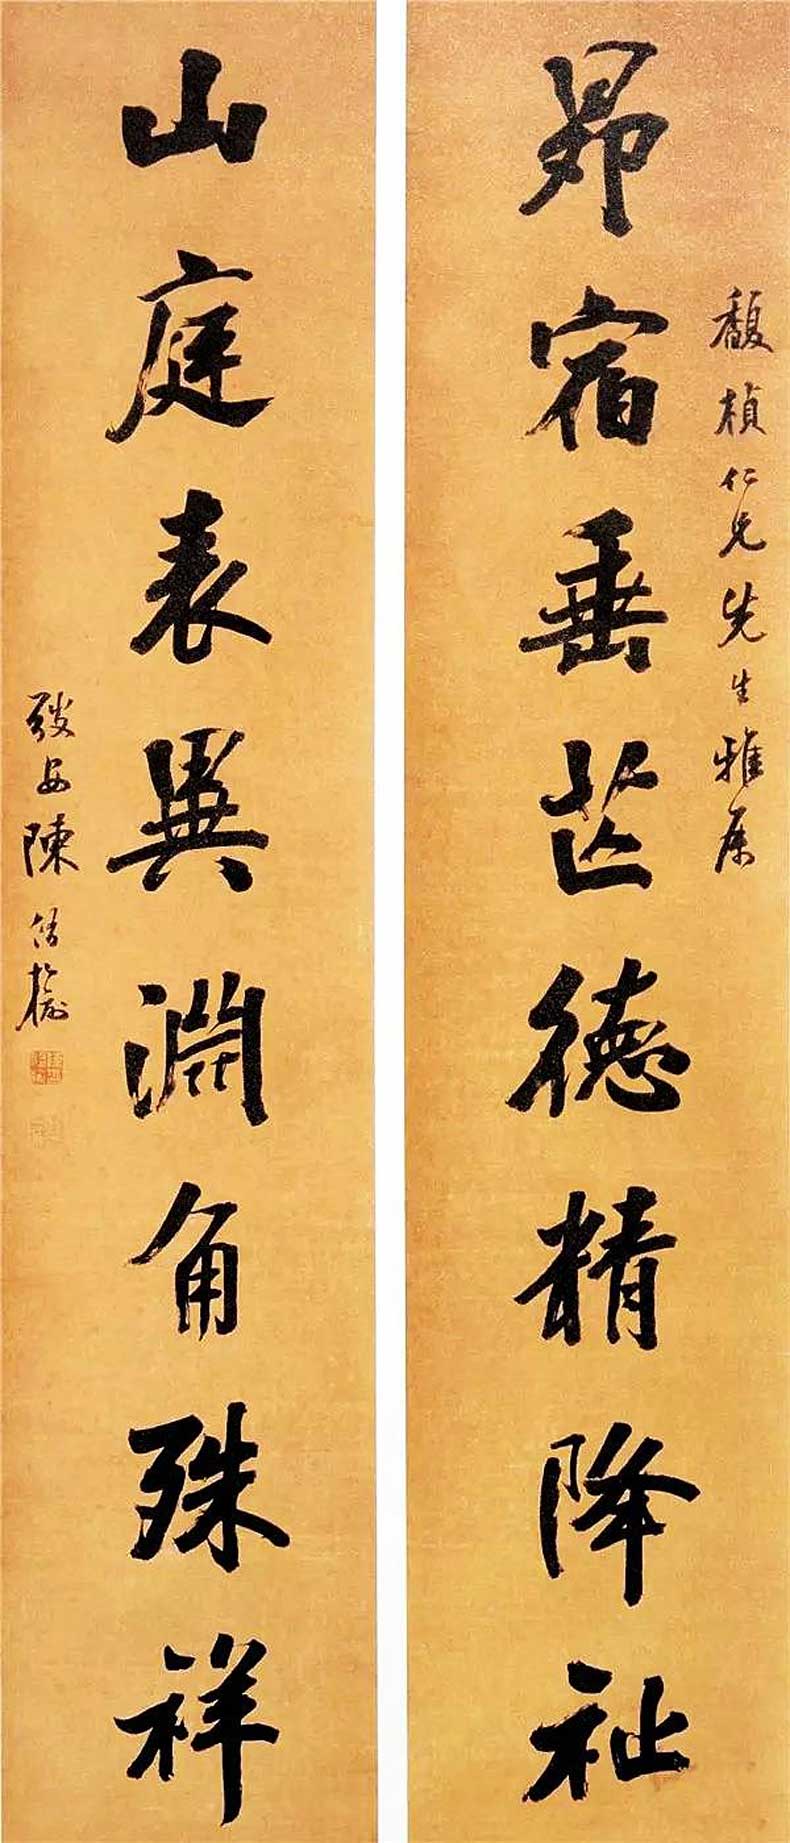 馥楨仁兄先生雅属
昴宿垂芒德精降祉
山庭表異淵角殊祥
陳